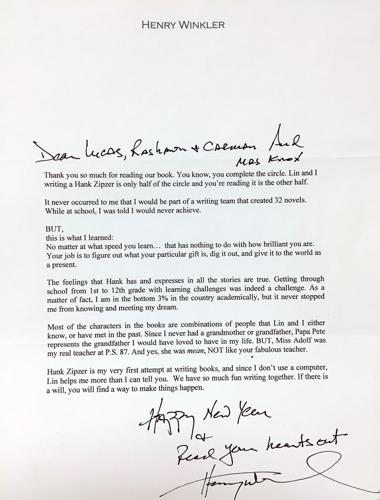 HENRY WINKLER
Dear Lucas, Rashawn + Carman And
Mrs Knox
Thank you so much for reading our book. You know, you complete the circle. Lin and I
writing a Hank Zipzer is only half of the circle and you're reading it is the other half.
It never occurred to me that I would be part of a writing team that created 32 novels.
While at school, I was told I would never achieve.
BUT,
this is what I learned:
No matter at what speed you learn… that has nothing to do with how brilliant you are.
Your job is to figure out what your particular gift is, dig it out, and give it to the world as
a present.
The feelings that Hank has and expresses in all the stories are true. Getting through
school from 1st to 12th grade with learning challenges was indeed a challenge. As a
matter of fact, I am in the bottom 3% in the country academically, but it never stopped
me from knowing and meeting my dream.
Most of the characters in the books are combinations of people that Lin and I either
know, or have met in the past. Since I never had a grandmother or grandfather, Papa Pete
represents the grandfather I would have loved to have in my life. BUT, Miss Adolf was
my real teacher at P.S. 87. And yes, she was mean, NOT like your fabulous teacher.
Hank Zipzer is my very first attempt at writing books, and since I don't use a computer,
Lin helps me more than I can tell you. We have so much fun writing together. If there is
a will, you will find a way to make things happen.
Happy New Year
+
Read your hearts out